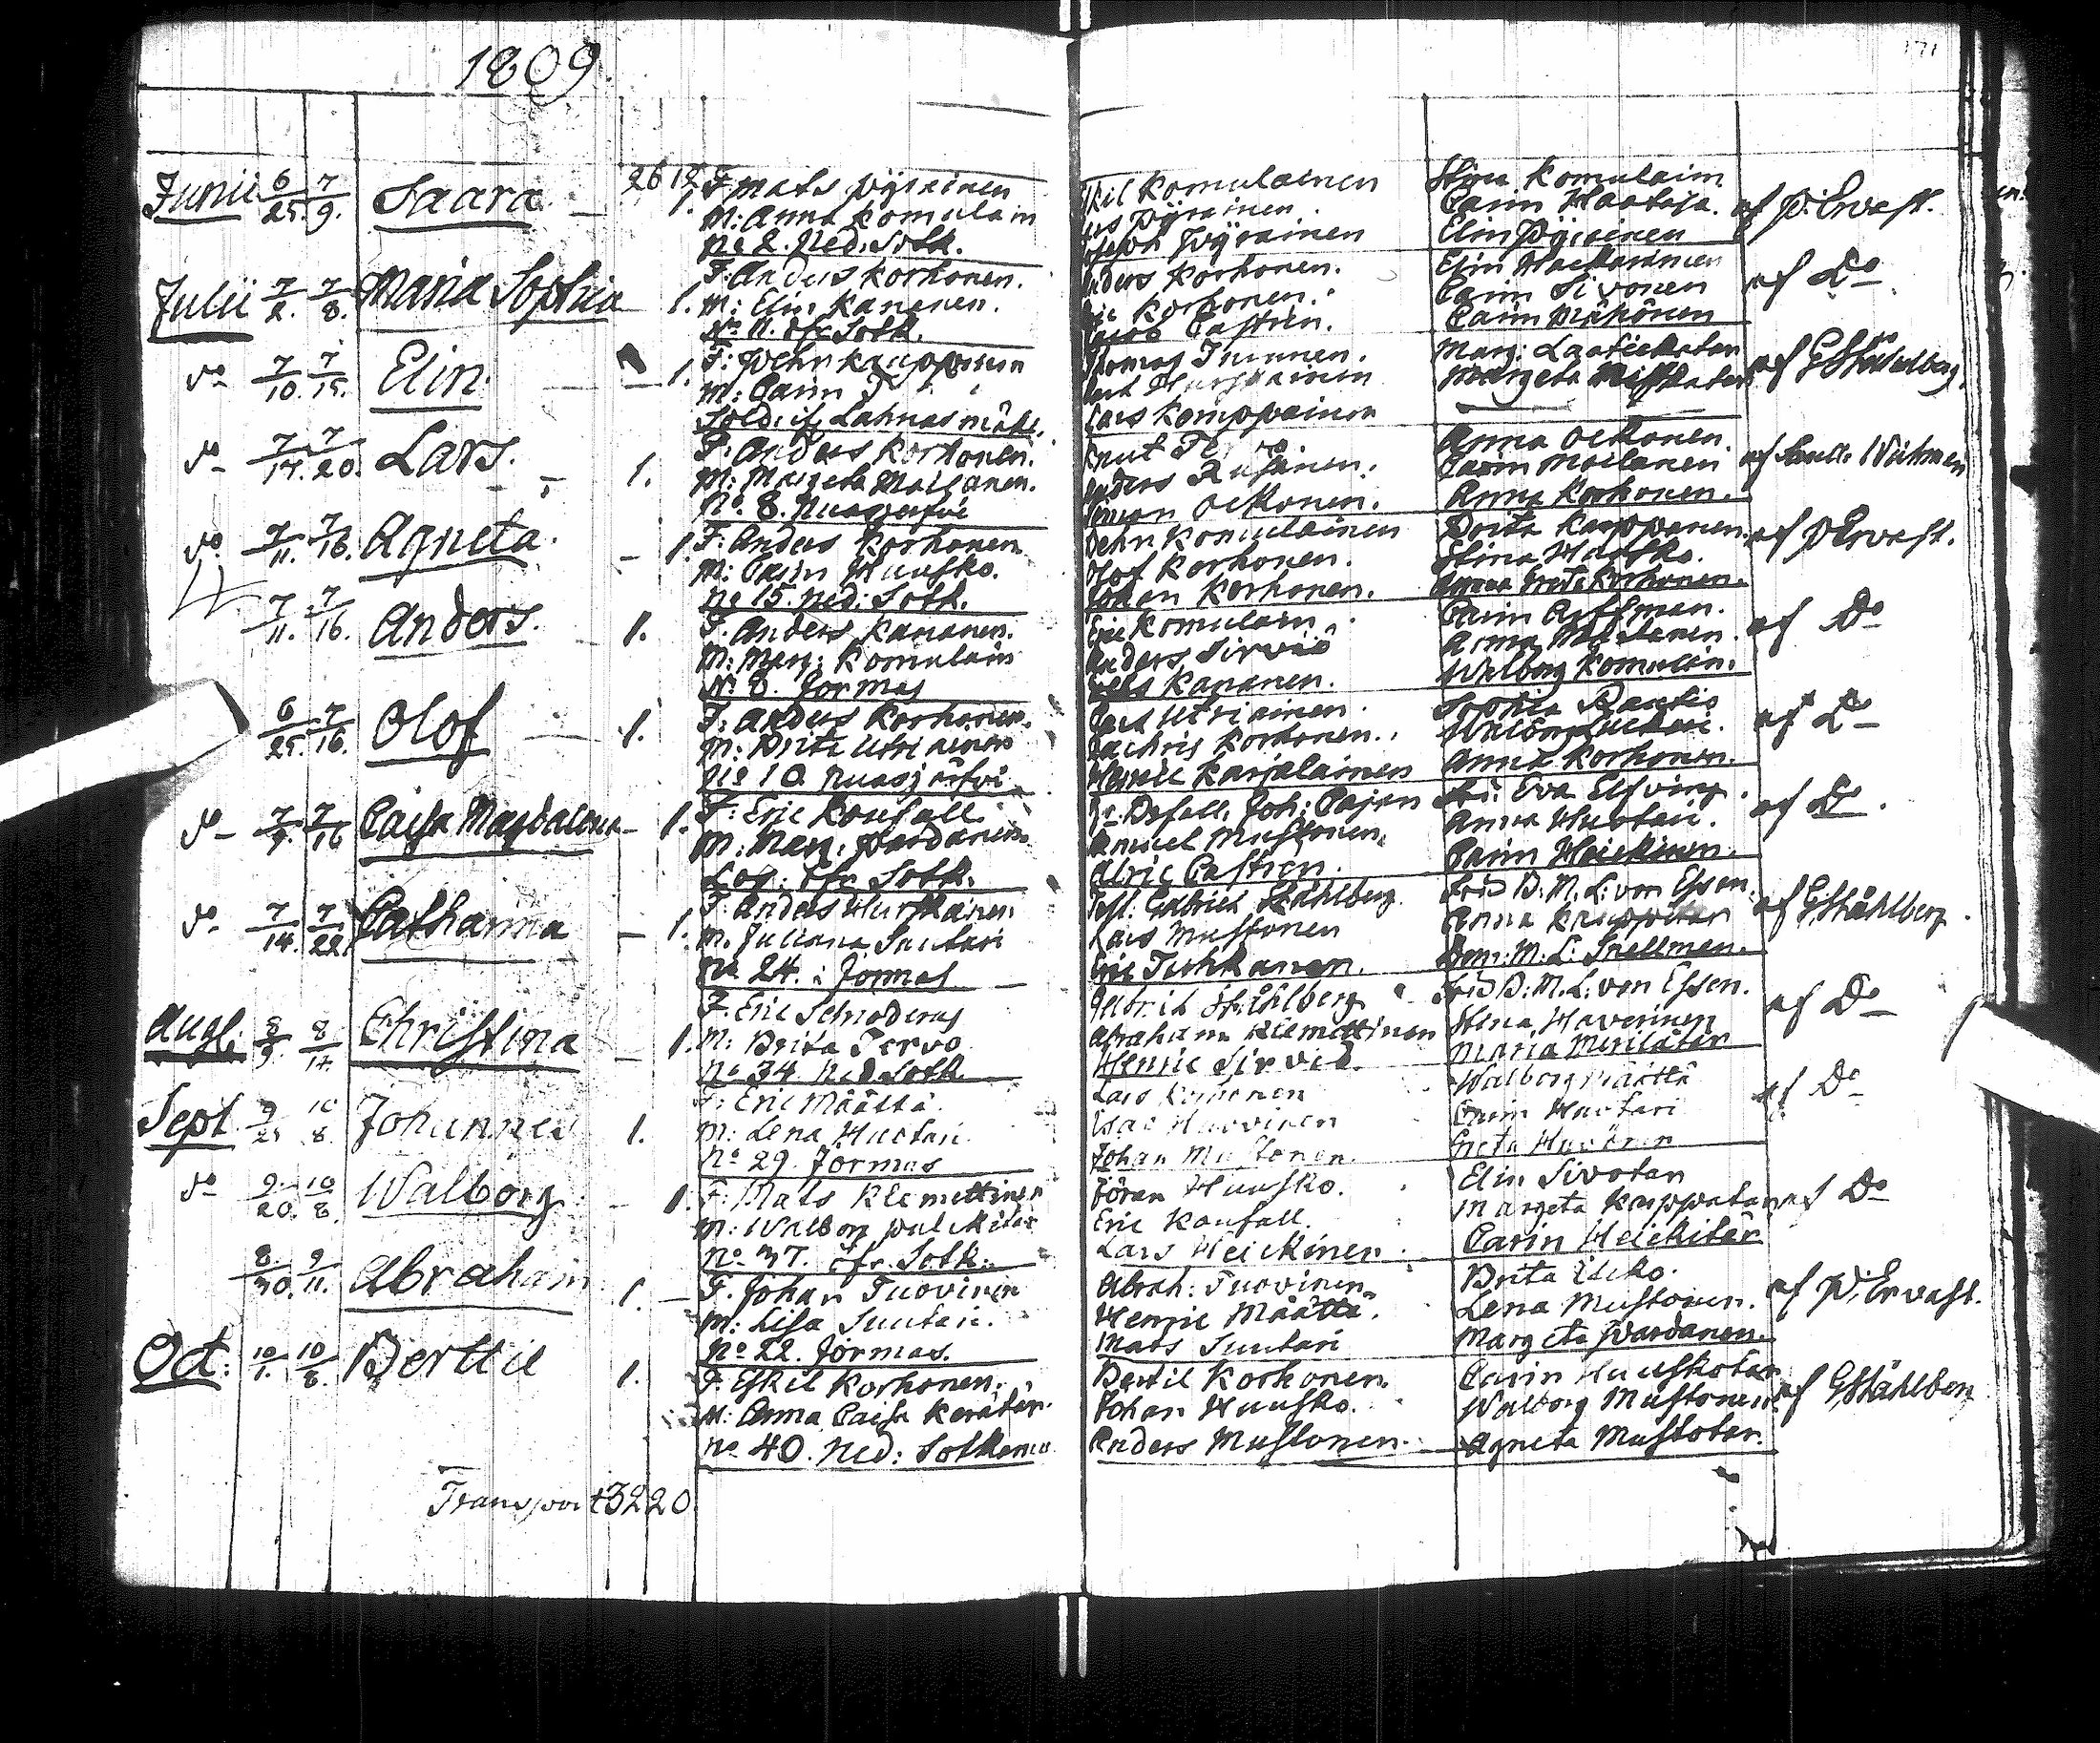 1809.
171
Junii 6/25. 7/9. Saara 26 12 1. F: Mats Pyrainen
M: Anna Komulain
No 2. Ned: Sotk.
Komulainen
Pyrainen.
Joseph Pyrainen
Stina Komulain
Carin Haataja.
Elin Pyrainen
af P: Ervast.
Julii 7/2. 7/8. Maria Sophia 1. F: Anders Korhonen.
M: Elin Kananen.
No 11. öfr Sotk.
Anders Korhonen.
Korhonen.
Jacob Castrén.
Elin
Carin Sivonen
Carin Mähönen
af Do
do 7/10. 7/15. Elin. 1. F: Pehr Kauppinen
M: Carin
Sold: if: Lahnasmäki.
Thomas
Lars Komppainen
Marg: Laatickatar
Margeta
af GStåhlberg
do 7/17. 7/20. Lars. 1. F: Anders Korhonen.
M: Margeta Moilanen.
No. 8. Nuasjerfvi
Knut
Anders
Simon Ockonen.
Anna Ockonen.
Carin Moilanen
Anna Korhonen.
af
do 7/11. 7/16. Agneta. 1. F: Anders Korhonen
M: Carin Huusko.
No 15. Ned: Sotk.
Pehr Komulainen
Olof Korhonen.
Johan Korhonen.
Brita Kauppanen.
Stina Huusko.
Anna Greta Korhonen.
af P Ervast.
7/11. 7/16. Anders. 1. F: Anders Kananen.
M: Marg: Komulain
No 8. Jormas
Eric Komulain.
Anders Sirviö
Kananen.
Carin
Anna
Walborg Komulin.
af Do
6/25. 7/16. Olof 1. F: Anders Korhonen.
M: Brita Utriainen
No 10. Nuasjärfvi
Utriainen.
Zachris Korhonen.
Henric Karjalainen
Sophia Rautio
Walborg
Anna Korhonen.
af Do
do 7/9. 7/16 Caisa Magdalena 1. F: Eric Konfall.
M: Marg: Pardanen
öfr Sotk.
Joh: Pajan
Mustonen.
Ulric Castren.
Eva Elfving.
Anna Huotari.
Carin Heickinen.
af Do.
do 7/14. 7/22. Catharina 1. F: Anders Hurskainen
M. Juliana Suutari
No 24. i Jormas
Gabriel Ståhlberg.
Lars Mustonen
Eric Tuhkanen.
B: M: L: von Essen.
Anna
M: L: Snellman.
af GStåhlberg.
Augt: 8/9. 8/14. Christina 1. F. Eric Schroderus
M: Brita Tervo
No 34 Ned Sotk.
Gabriel Ståhlberg
Abraham Klemettinen
Henric Sirviö.
B: M. L: von Essen.
Stina Haverinen
Maria Meriläter
af Do
Sept 9/ 10/8. Johannes 1. F: Eric Määttä
M: Lena Huotari
No 29. Jormas
Lars
Isac Huovinen
Johan Mustonen.
Walborg Määttä
Carin Huotari
Greta
af Do
do 9/20. 10/8. Walborg 1. F: Mats Klemettinen
M: Walborg
No. 37. öfr. Sotk.
Jöran Huusko.
Eric Konfall.
Lars Heickinen.
Elin Sivotar
Margeta Kauppatar
Carin Heickiter
af Do
8/30. 9/11. Abraham 1. F. Johan Tuovinen
M: Lisa Suutari.
No 22. Jormas.
Abrah: Tuovinen
Henric Määttä.
Mats Suutari
Brita
Lena Mustonen.
Margeta Pardanen.
af P: Ervast.
Oct: 10/1. 10/8. Berttil 1. F. Eskil Korhonen.
M: Anna Caisa Kerätär.
No 40. Ned: Sotkamo
Bertil Korhonen.
Johan Huusko.
Anders Mustonen.
Carin Huuskotar
Walborg Mustonen
Agneta Mustotar.
af GStåhlberg
Transport 32 20